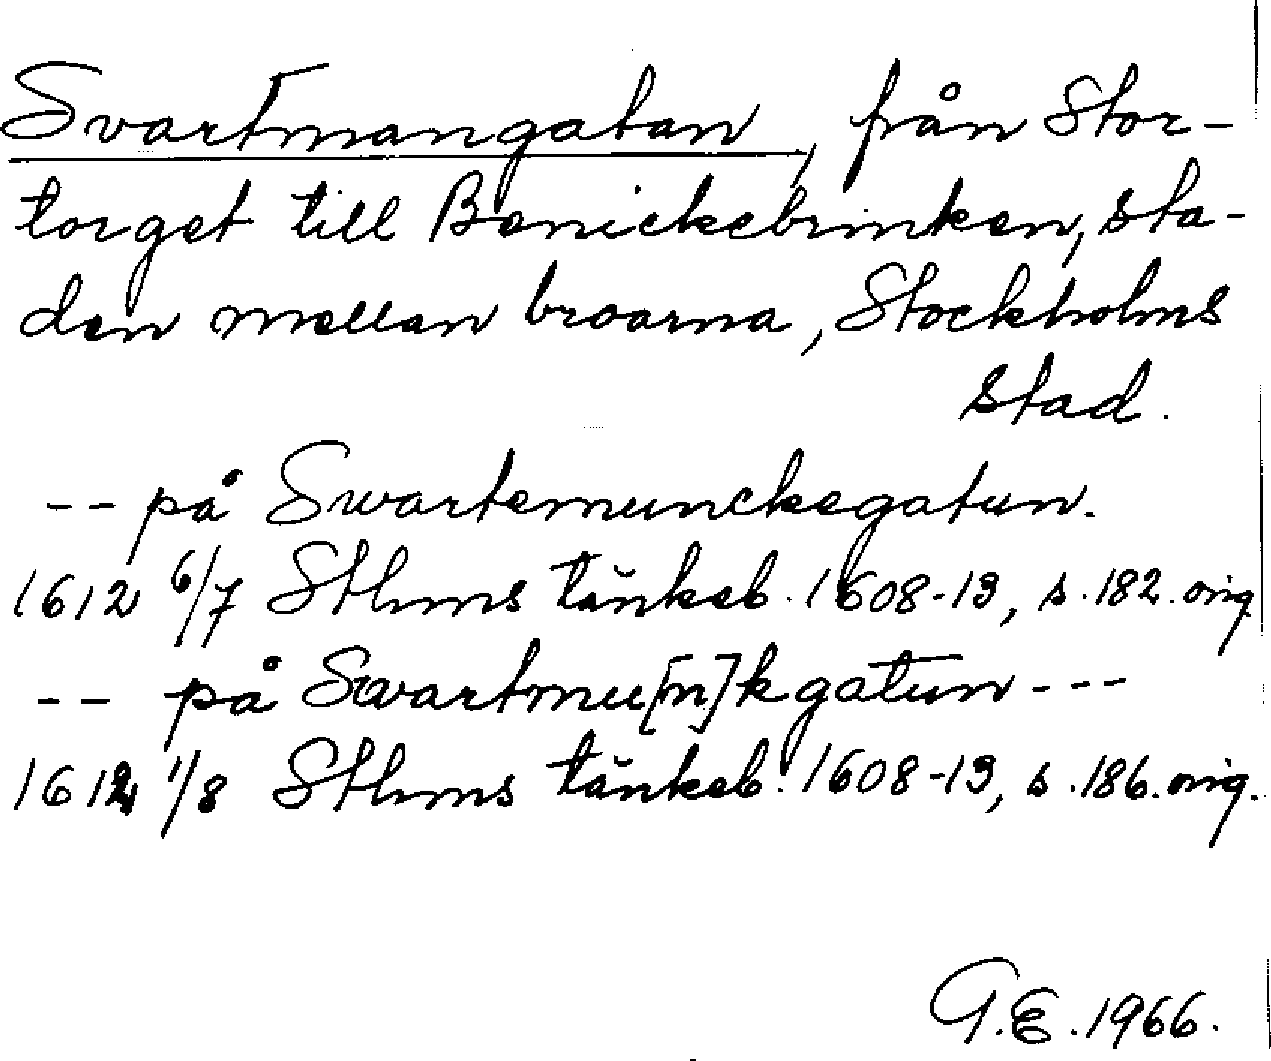 Svartmangatan, från Stor-
torget till Benickebrinken, sta-
den mellan broarna, Stockholms
stad.
-- på Swartemunckegatun.
1612 6/7 Sthms tänkeb. 1608-13, s. 182. orig
-- på Swartmu[n]kgatun ---
1612 1/8 Sthms tänkeb. 1608-13, s. 186. orig.
G.E. 1966.